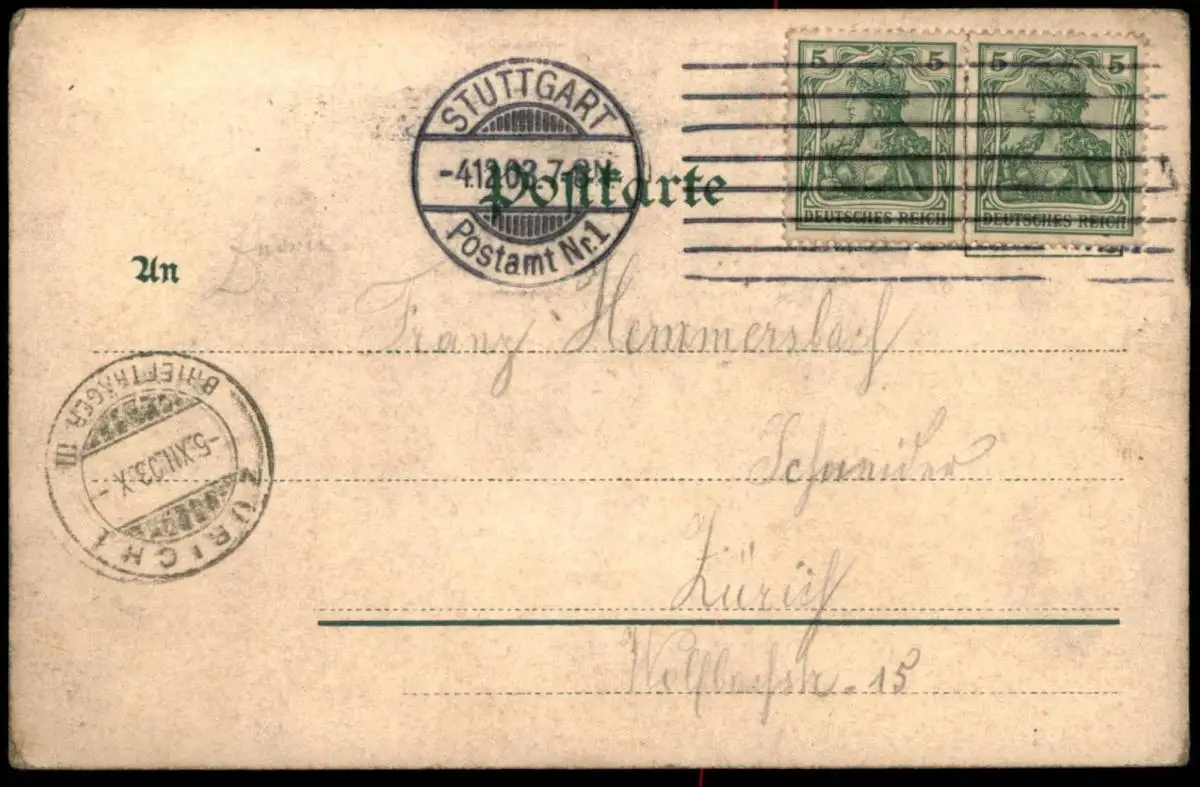 5 5 5 5
DEUTSCHES REICH DEUTSCHES REICH
STUTTGART
-4.12.03.7-8N
Postamt Nr.1
Postkarte
An
Franz Hemmersbach
Schneider
Zürich
Wolfbachstr. 15
ZÜRICH 1
-5.XII.03.X-
BRIEFTRÄGER III